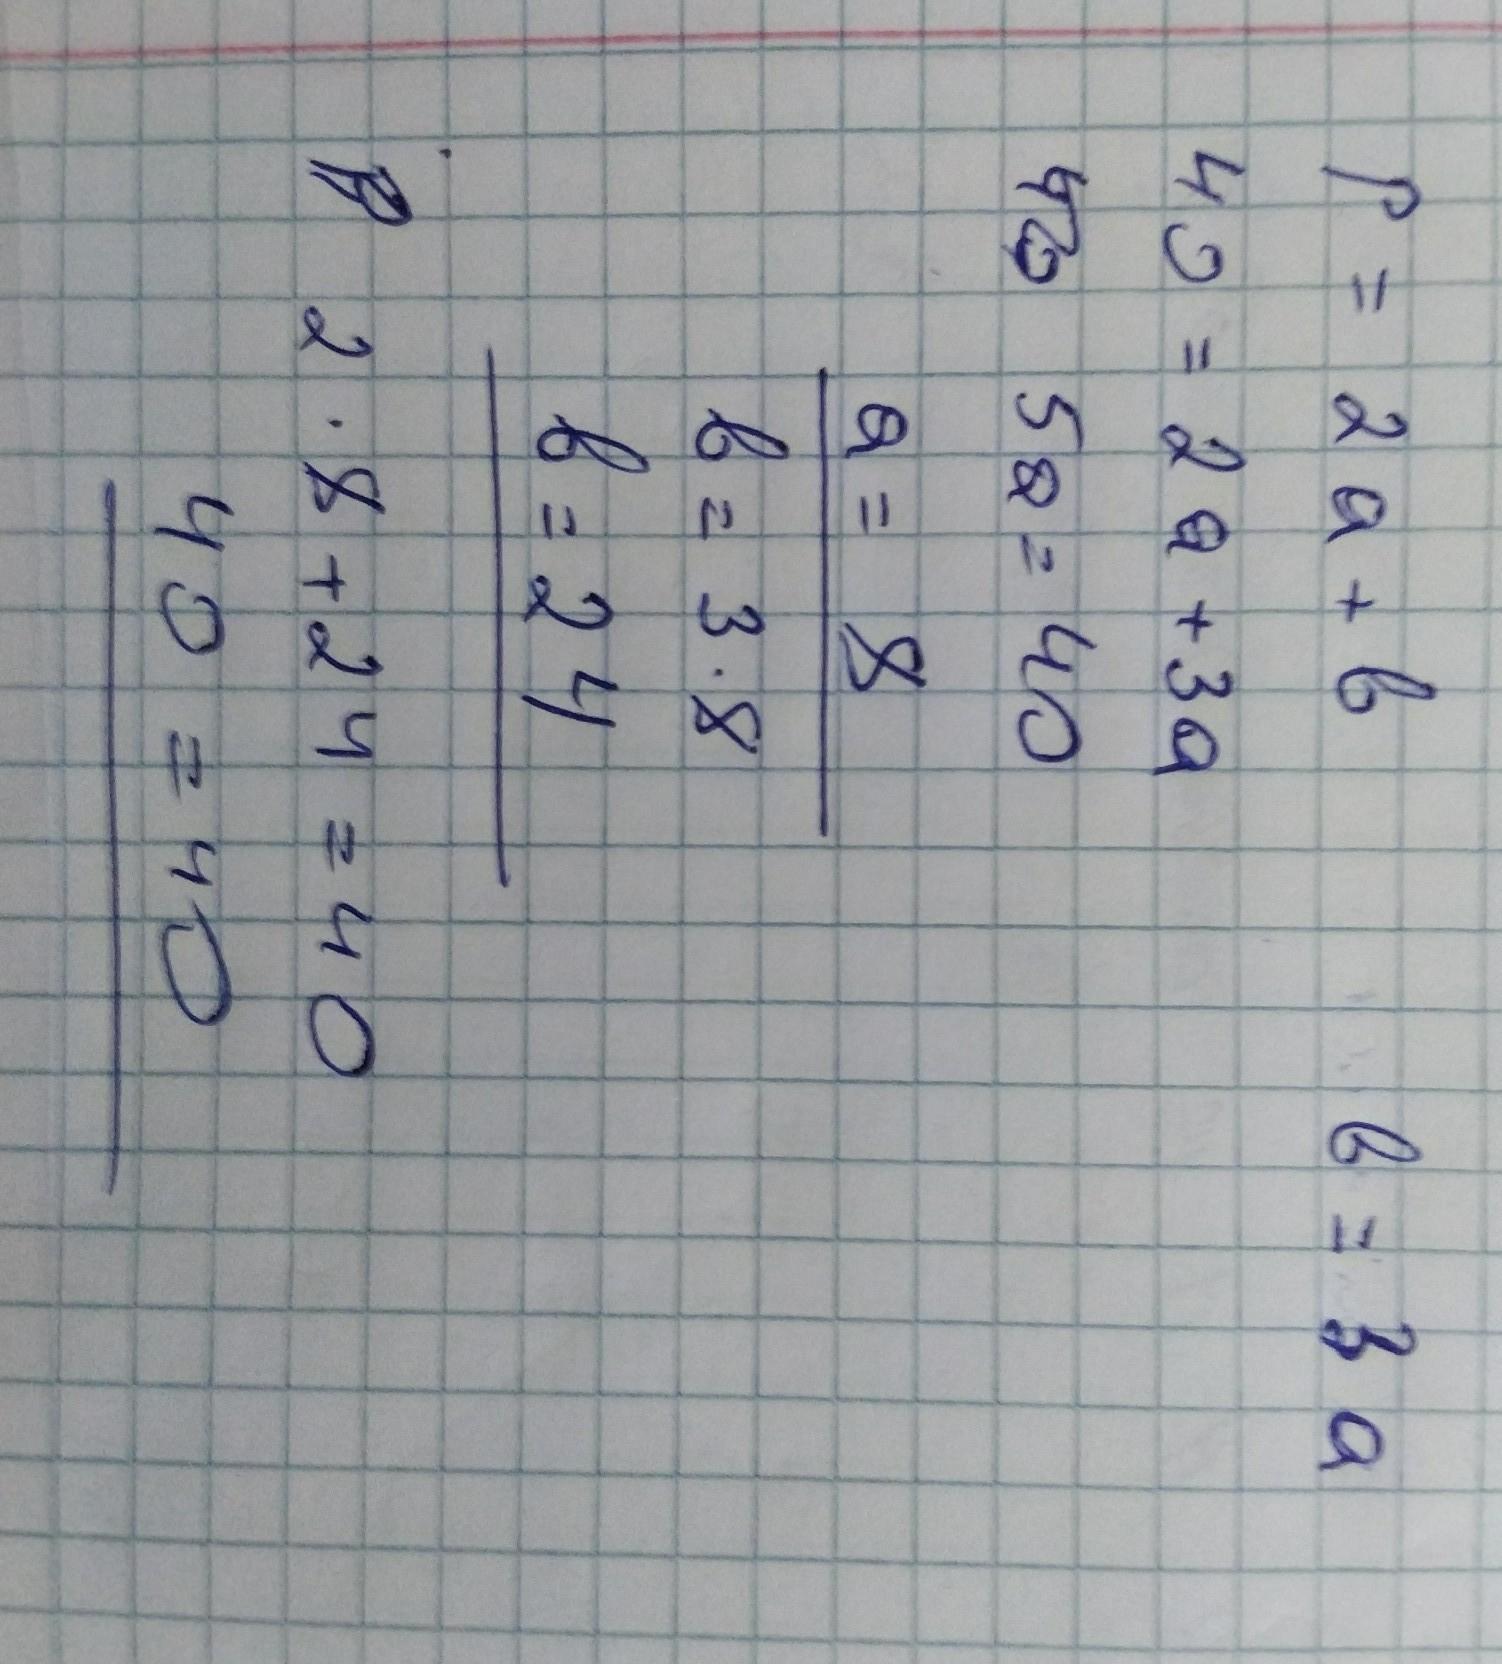 P = 2a + b b = 3a
40 = 2a + 3a
40 5a = 40
a = 8
b = 3 · 8
b = 24
P 2 · 8 + 24 = 40
40 = 40